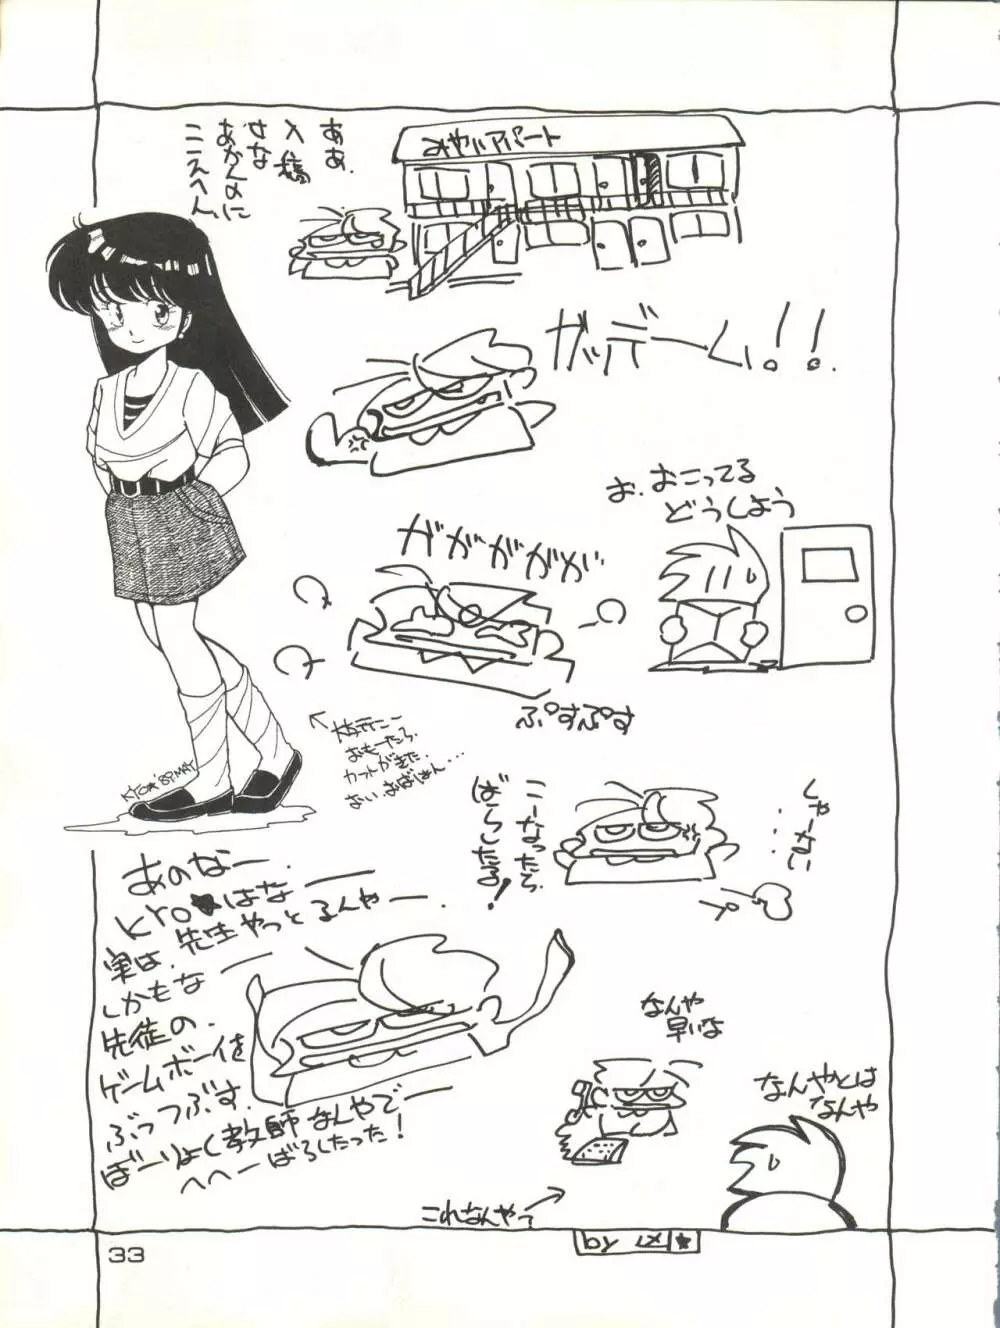 ああ、
入稿
すな
あかんのに
こえへん
みやいアパート
ガッデーム!!
お、おこってる
どうしよう
ガガガガガ
ぷすぷす
おもーたら、
カットがきた、
KYO★'89.MAY
こーなったら
ばらしたる!
しゃーない
・・・
あのなー、
KYO★はな
実は、先生やっとるんやー、
しかもな
先徒の、
ゲームボーイを
ぶっつぶす、
ぼーりょく教師なんやでー
へへーばらしたった!
なんや
早いな
なんやとは
なんや
これなんやって
by
33